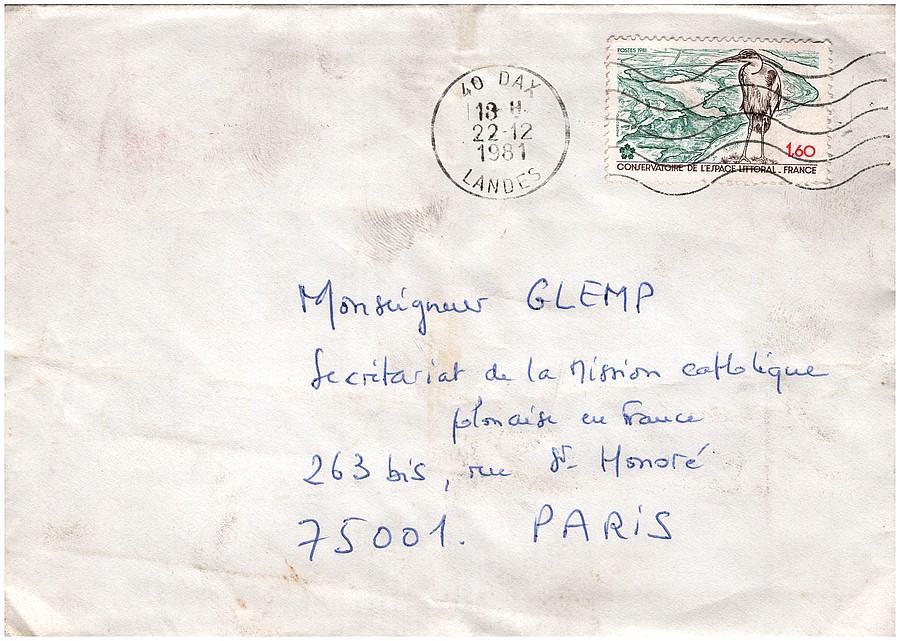 40 DAX
18 H.
22-12
1981
LANDES
POSTES 1981
1,60
CONSERVATOIRE DE L'ESPACE LITTORAL - FRANCE
Monseigneur GLEMP
Secrétariat de la Mission catholique
polonaise en France
263 bis, rue St- Honoré
75001. PARIS